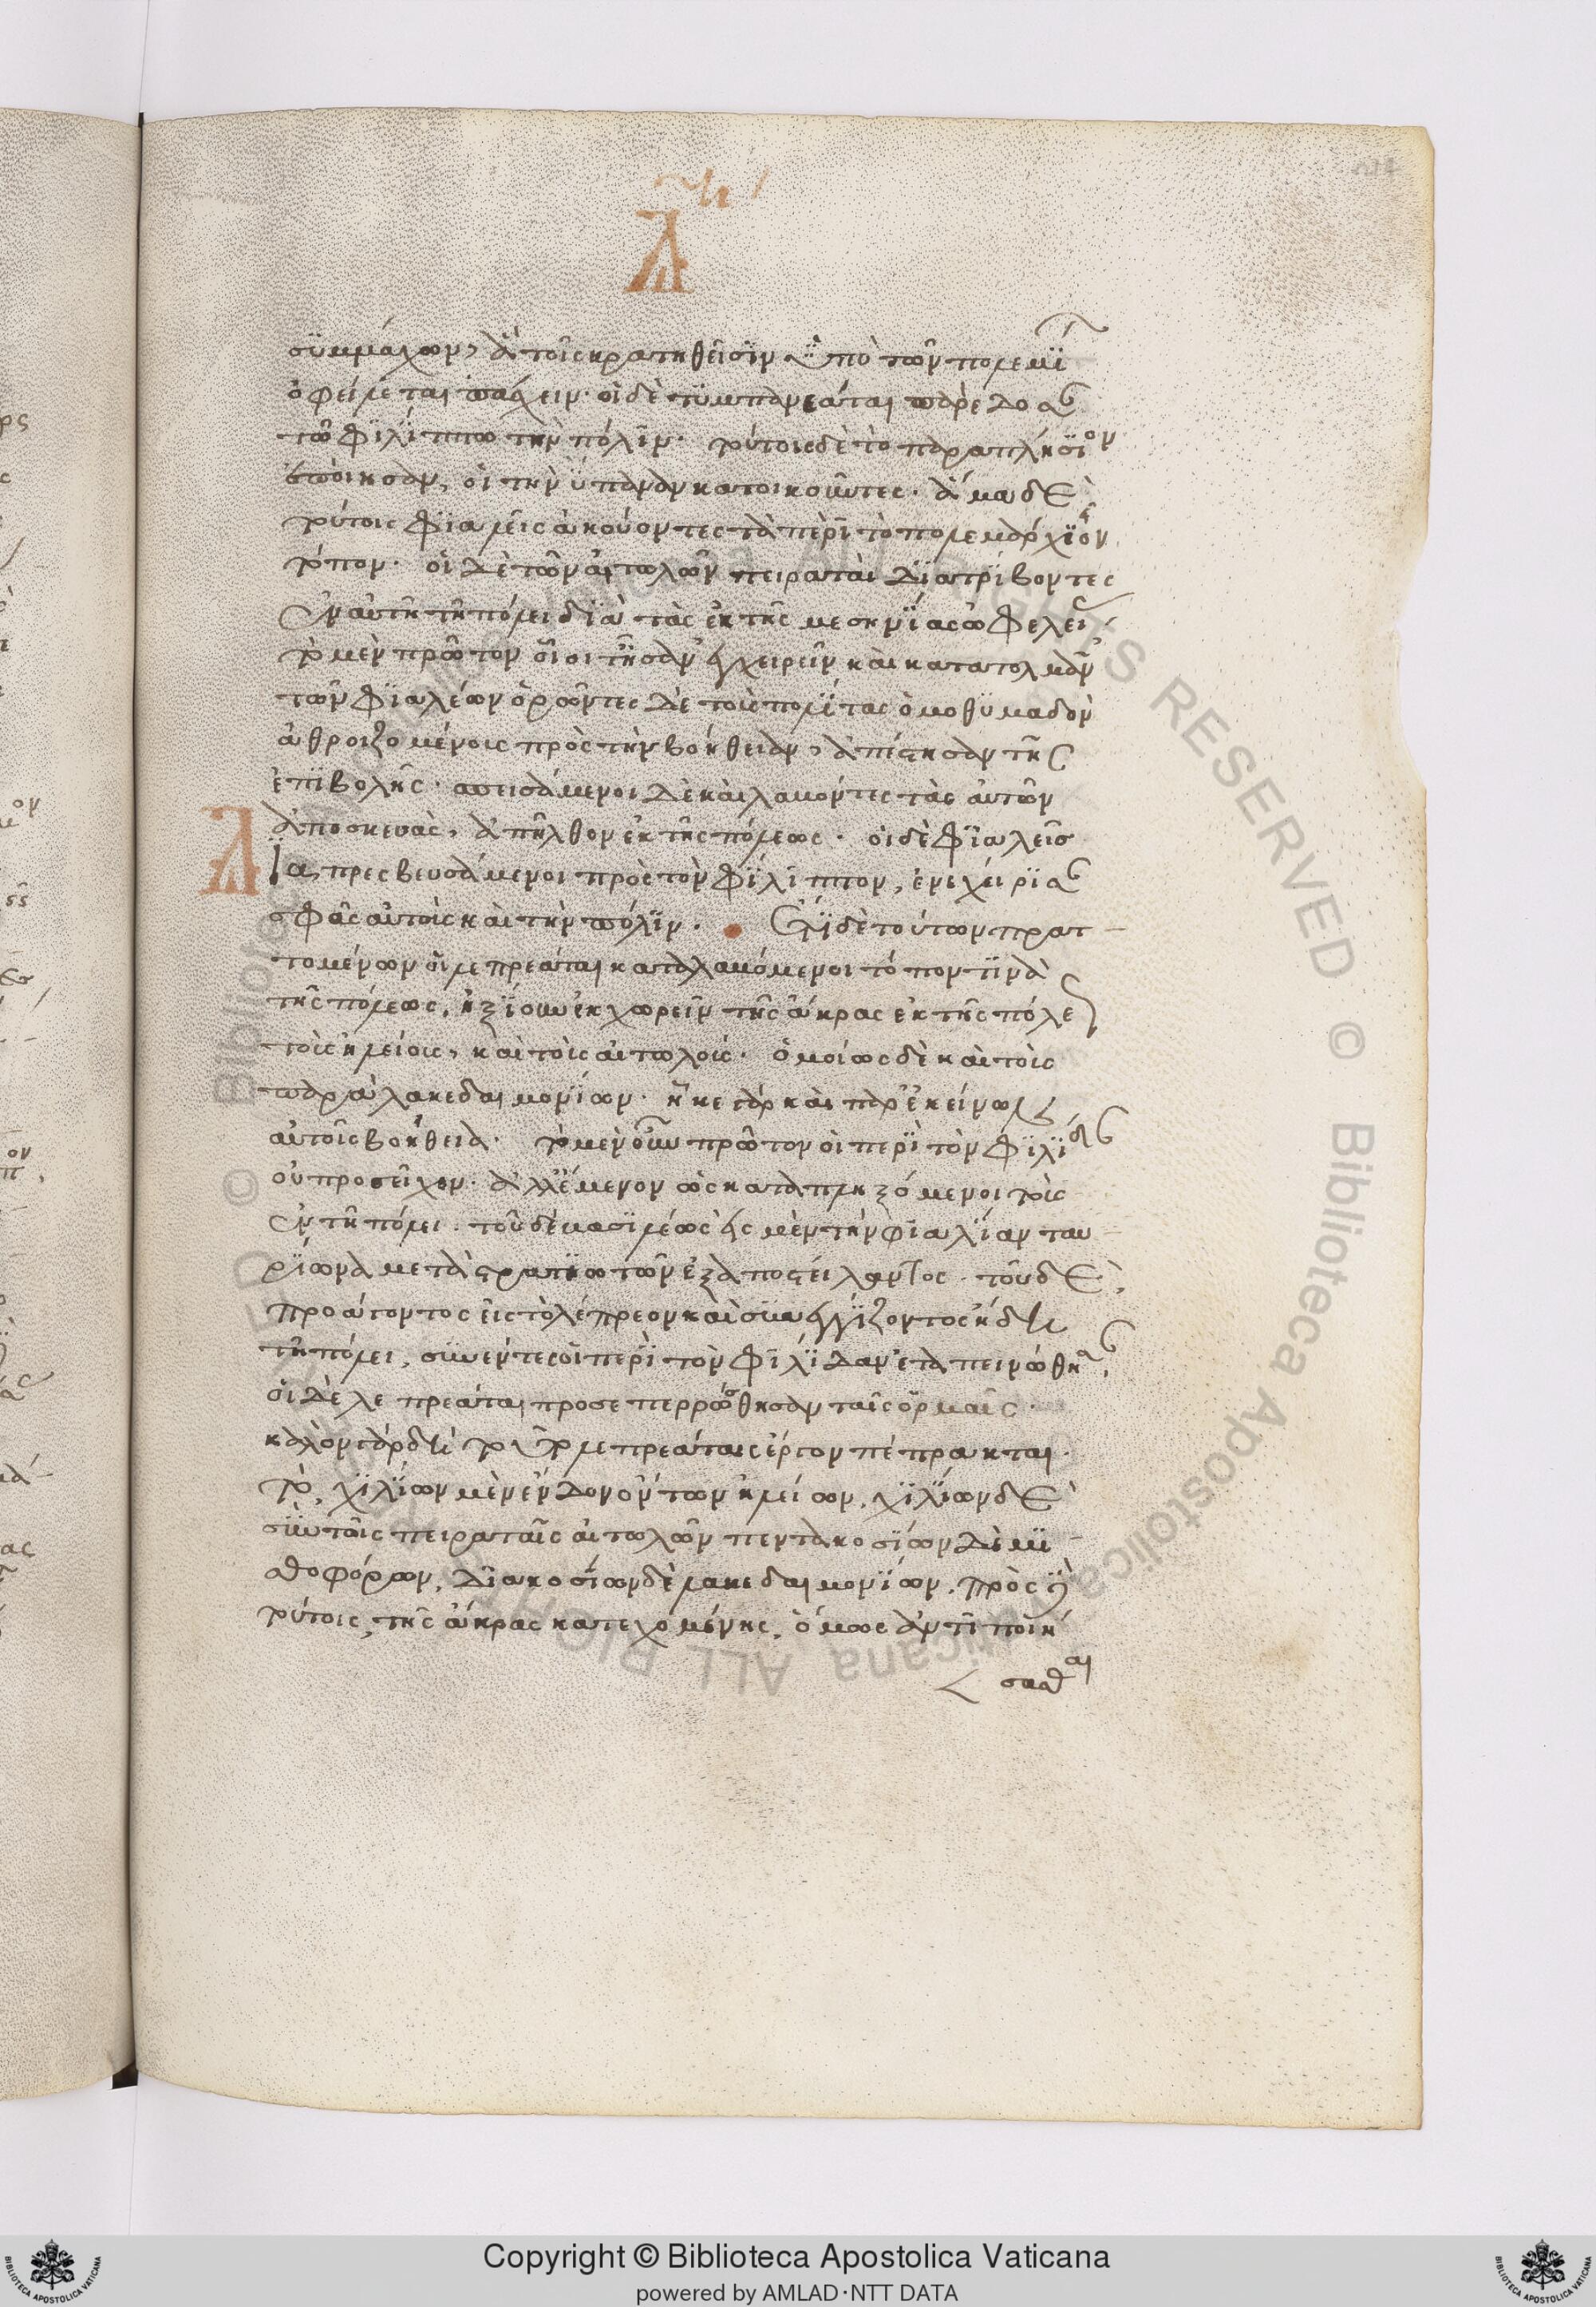 συμμάχων, ἃ τοῖς κρατηθεῖσιν ὑπὸ τῶν πολεμί
ὀφείλεται πάσχειν. οἱ δὲ τυμπανεᾶται παρέδοσαν
τῷ φιλίππῳ τὴν πόλιν. τούτοις δὲ τὸ παραπλήσιον
ἐποίησαν, οἱ τὴν ὕπαναν κατοικοῦντες. ἅμα δὲ
τούτοις φιαλεῖς ἀκούοντες τὰ περὶ τὸ πολεμάρχιον
τόπον. οἱ δὲ τῶν αἰτωλῶν πειραταὶ διατρίβοντες
ἐν αὐτῇ τῇ πόλει διὰ τὰς ἐκ τῆς μεσηνίας ὠφελεί
τὸ μὲν πρῶτον οἷοί τ' ἦσαν ἐγχειρεῖν καὶ κατατολμᾶν
τῶν φιαλέων ὁρῶντες δὲ τοὺς πολίτας ὁμοθυμαδὸν
ἀθροιζομένους πρὸς τὴν βοήθειαν, ἀπέστησαν τῆς
ἐπιβολῆς. σπεισάμενοι δὲ καὶ λαβόντες τὰς αὐτῶν
ἀποσκευὰς, ἀπῆλθον ἐκ τῆς πόλεως. οἱ δὲ φιαλεῖς
Δ ιαπρεσβευσάμενοι πρὸς τὸν φίλιππον, ἐνεχείρισαν
σφᾶς αὐτοὺς καὶ τὴν πόλιν. ἔτι δὲ τούτων πρατ
τομένων οἱ λεπρεᾶται καταλαβόμενοι τόπον τινὰ
τῆς πόλεως, ἠξίουν ἐκχωρεῖν τῆς ἄκρας ἐκ τῆς πόλεως
τοὺς ἠλείους, καὶ τοὺς αἰτωλούς. ὁμοίως δὲ καὶ τοὺς
παρὰ λακεδαιμονίων. ἧκε γὰρ καὶ παρ' ἐκείνων
αὐτοῖς βοήθεια. τὸ μὲν οὖν πρῶτον οἱ περὶ τὸν φιλίδαν
οὐ προσεῖχον. ἀλλ' ἔμενον ὡς καταπληξόμενοι τοὺς
ἐν τῇ πόλει. τοῦ δὲ βασιλέως εἰς μὲν τὴν φιαλίαν ταυ
ρίωνα μετὰ στρατιωτῶν ἐξαποστείλαντος. τοῦ δὲ
προάγοντος εἰς τὸ λέπρεον καὶ συνεγγίζοντος ἤδη
τῇ πόλει, συνέντες οἱ περὶ τὸν φιλίδαν ἐταπεινώθησαν,
οἱ δὲ λεπρεᾶται προσεπερρώσθησαν ταῖς ὁρμαῖς.
καλὸν γὰρ δὴ τοῦτο λεπρεάταις ἔργον πέπρακται.
τὸ, χιλίων μὲν ἔνδον ὄντων ἠλείων, χιλίων δὲ
σὺν τοῖς πειραταῖς αἰτωλῶν πεντακοσίων δὲ μι
σθοφόρων, διακοσίων δὲ λακεδαιμονίων, πρὸς δὲ
τούτοις, τῆς ἄκρας κατεχομένης, ὅμως ἀντιποιή
σασθαι